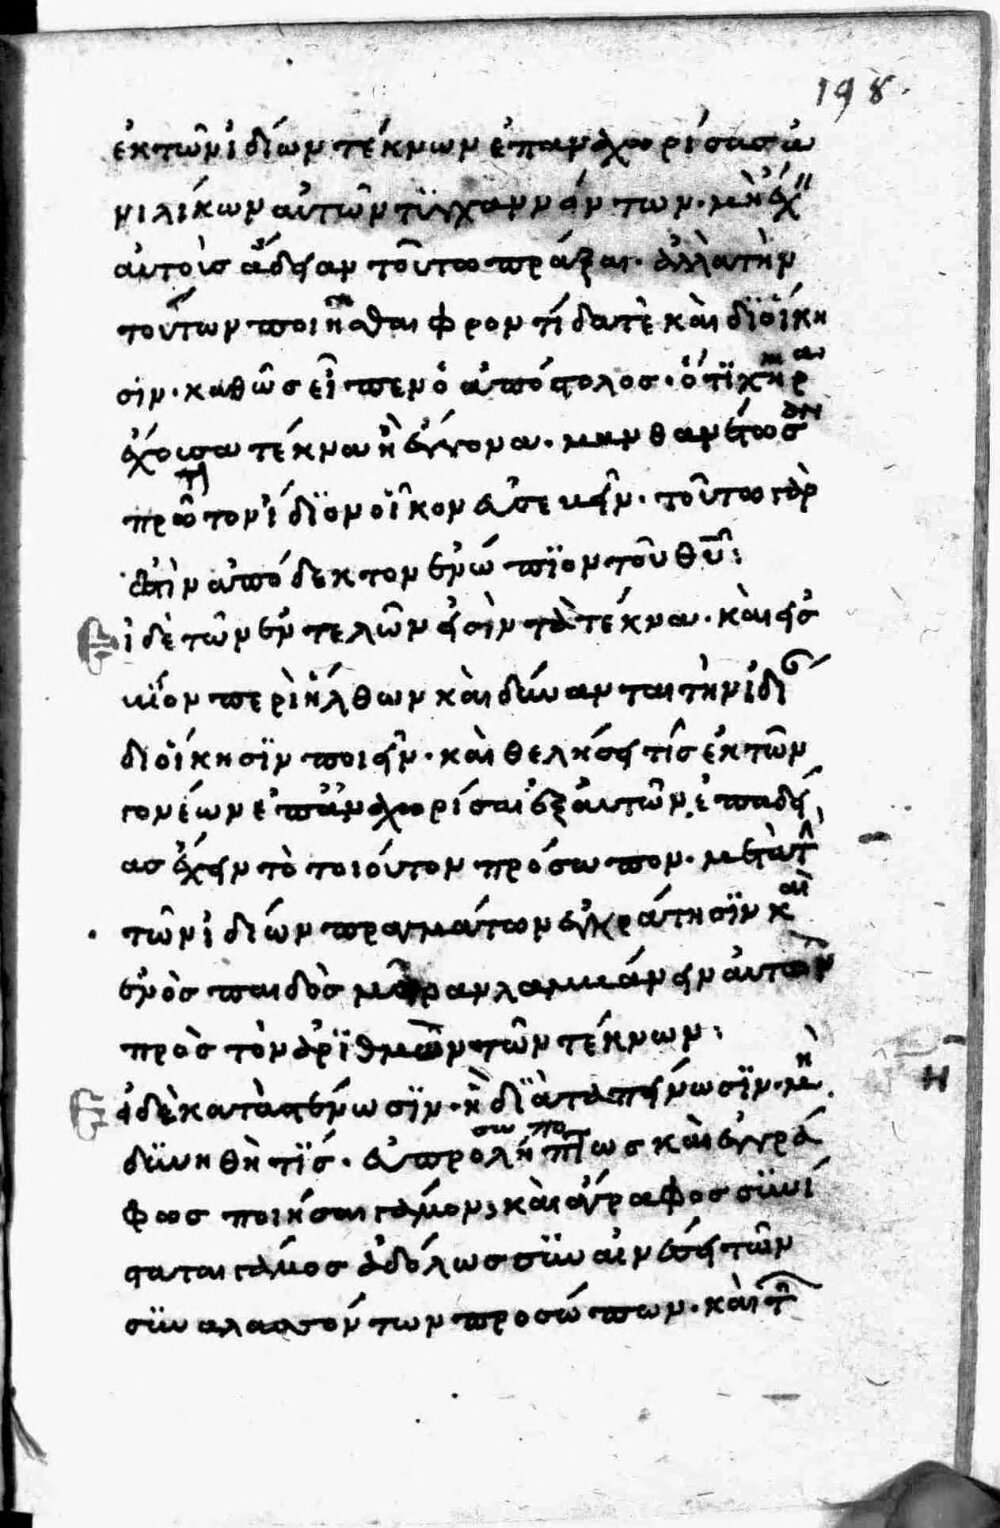 198
ἐκ τῶν ἰδίων τέκνων ἐπαναχωρίσασα
νιλίκων αὐτῶν τϋγχανμόντων. μὴ ἐχ
αὐτοὶς ἄδειαν τοῦτω πράξαι. ἀλλὰ τὴν
τούτων ποιῆσθαι φροντίδα τὲ καὶ δϊοίκη
σιν. καθῶς εἶπεν ὁ ἀπόστολος. ὅτϊ χήρ
ἔχουσα τέκνα ἢ ἔγγονα. μανθανέτωσαν
πρῶτον ἴδϊον οἶκον εὐσεβεῖν. τοῦτω γὰρ
ἐστὶν ἀπόδεκτον ἐνώπϊον τοῦ θῦ:
Εἰ δὲ τῶν ἐντελῶν εἰσὶν τὰ τέκνα. καὶ εἰς
κϊον περὶήλθων καὶ δύνανται τὴν ἰδί
διοίκησϊν ποιεῖν. καὶ θελήσει τῖς ἐκ τῶν
γονέων ἐπἀναχωρίσαι ἐξ αὐτῶν, ἐπ' ἀδεί
ας ἔχειν τὸ τοιούτον πρόσωπον. μετὰ τ
τῶν ἰδίων πραγμάτων ἐγκράτησϊν καὶ
ἑνὸς παιδὸς μοῖραν λαμβάνειν αὐτῶν
πρὸς τὸν ἀρϊθμὸν τῶν τέκνων:
Εἰ δὲ κατὰ στένωσϊν. ἢ δϊὰ ταπείνωσϊν. μὴ
δϋνηθὴ τϊς. εὐπρολήπτως καὶ ἐγγρά
φως ποιήσαι γάμον, καὶ ἄγραφος σϋνί
σταται γάμος ἀδόλως σϋναινέσει τῶν
σϋναλασσόντων προσώπων. καὶ τ